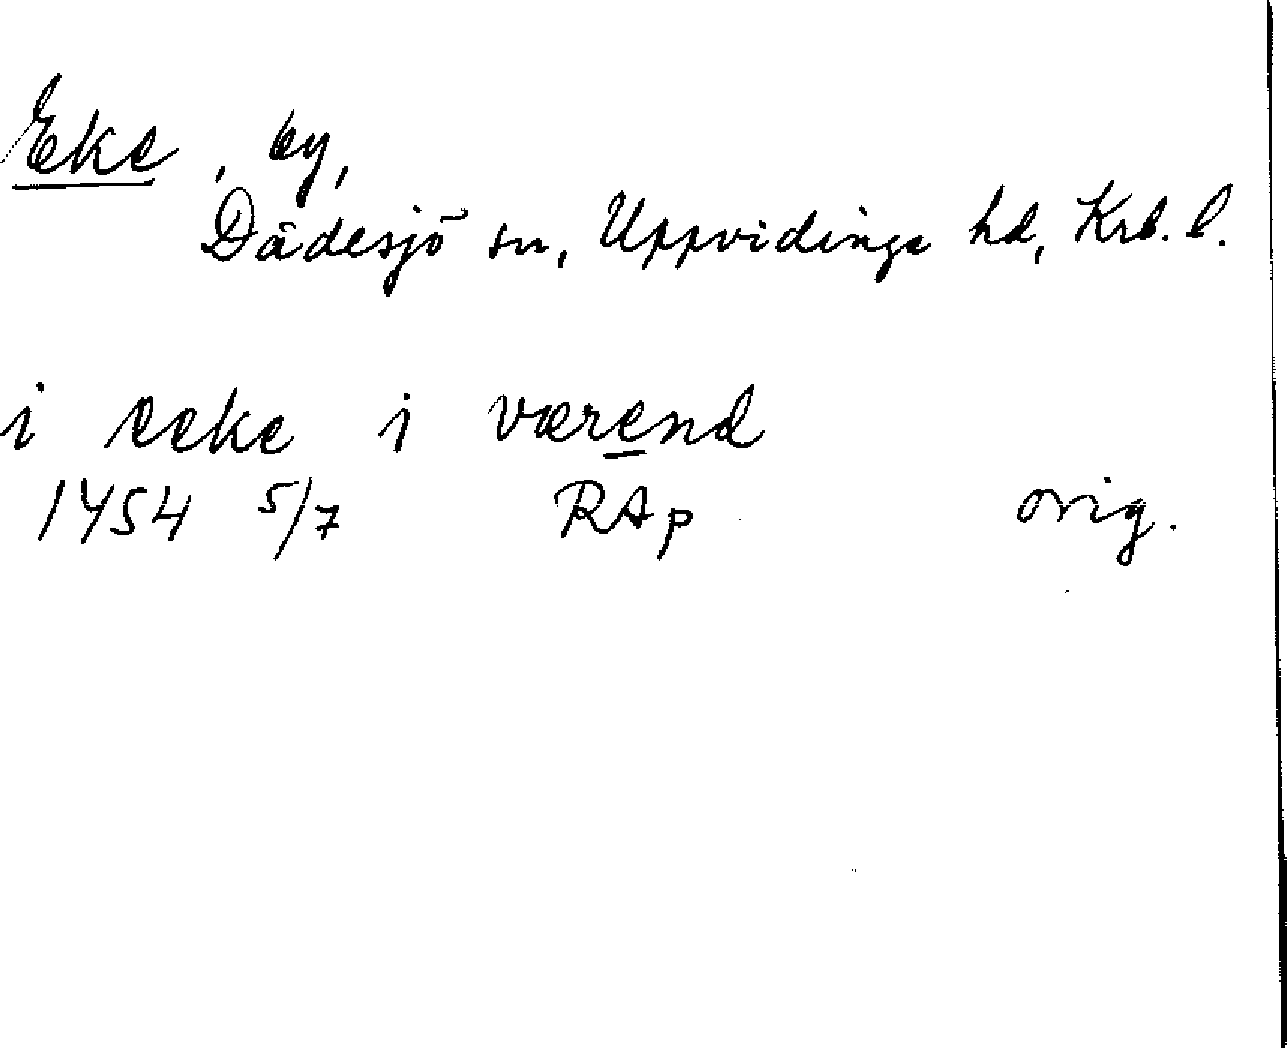 Eke, by,
Dädesjö sn, Uppvidinge hd, Krb. l.
i eeke i værend
1454 5/7 RAp orig.